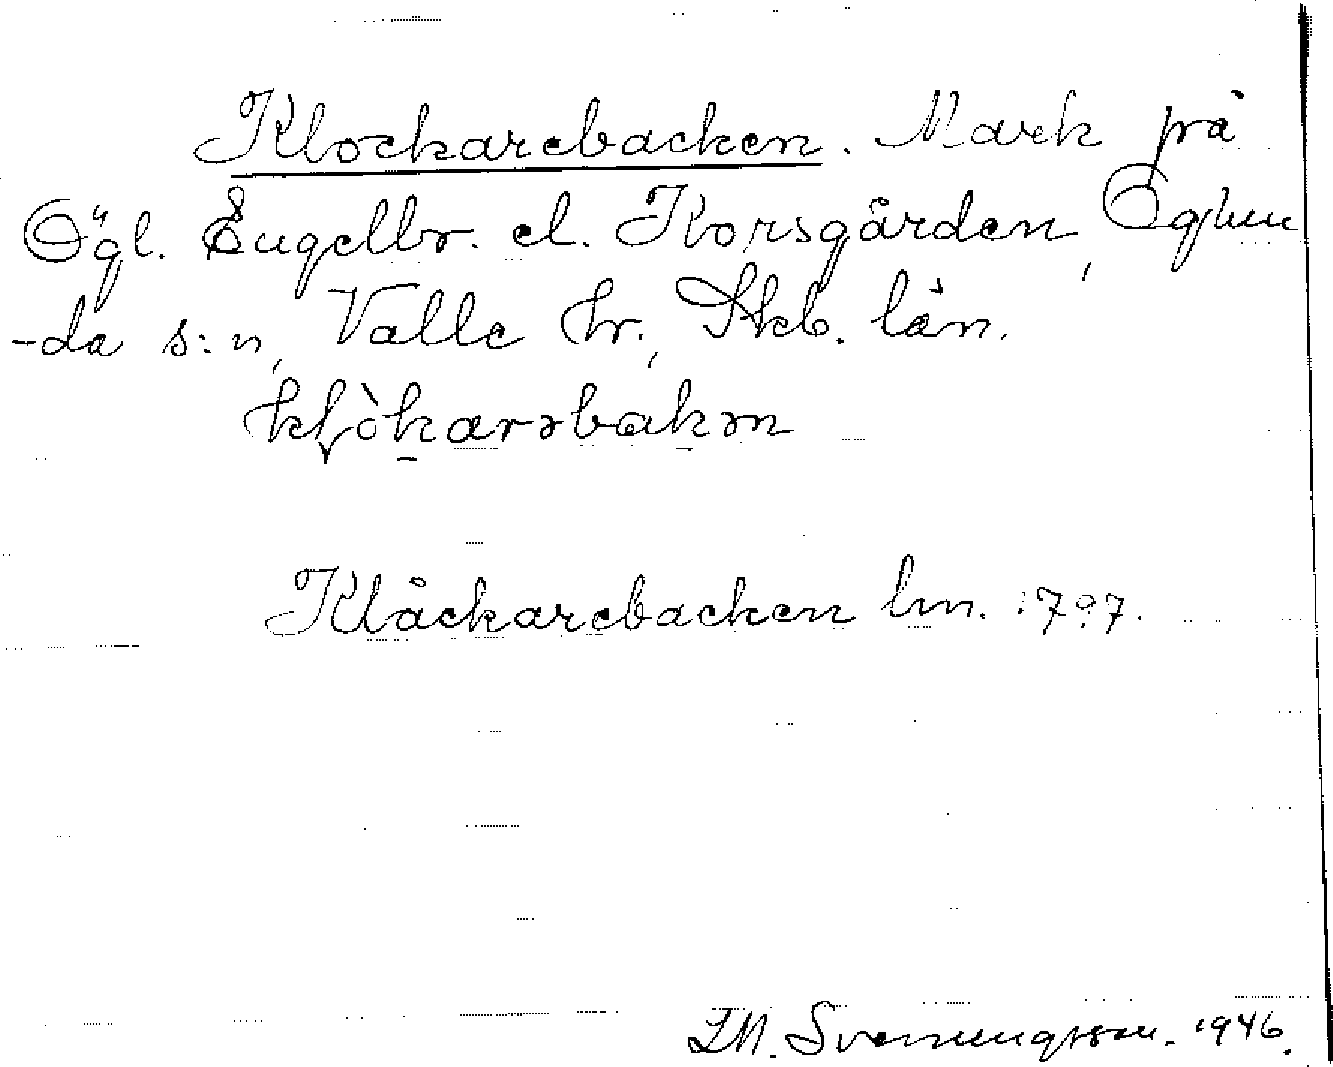 Klockarebacken. Mark på
Ögl. Engelbr. el. Korsgården, Eghen
-da s:n, Valle hr., Skb. län.
kḷòkarəbakən
Klåckarebacken lm. 1797.
I.M. Svennungsson. 1946.